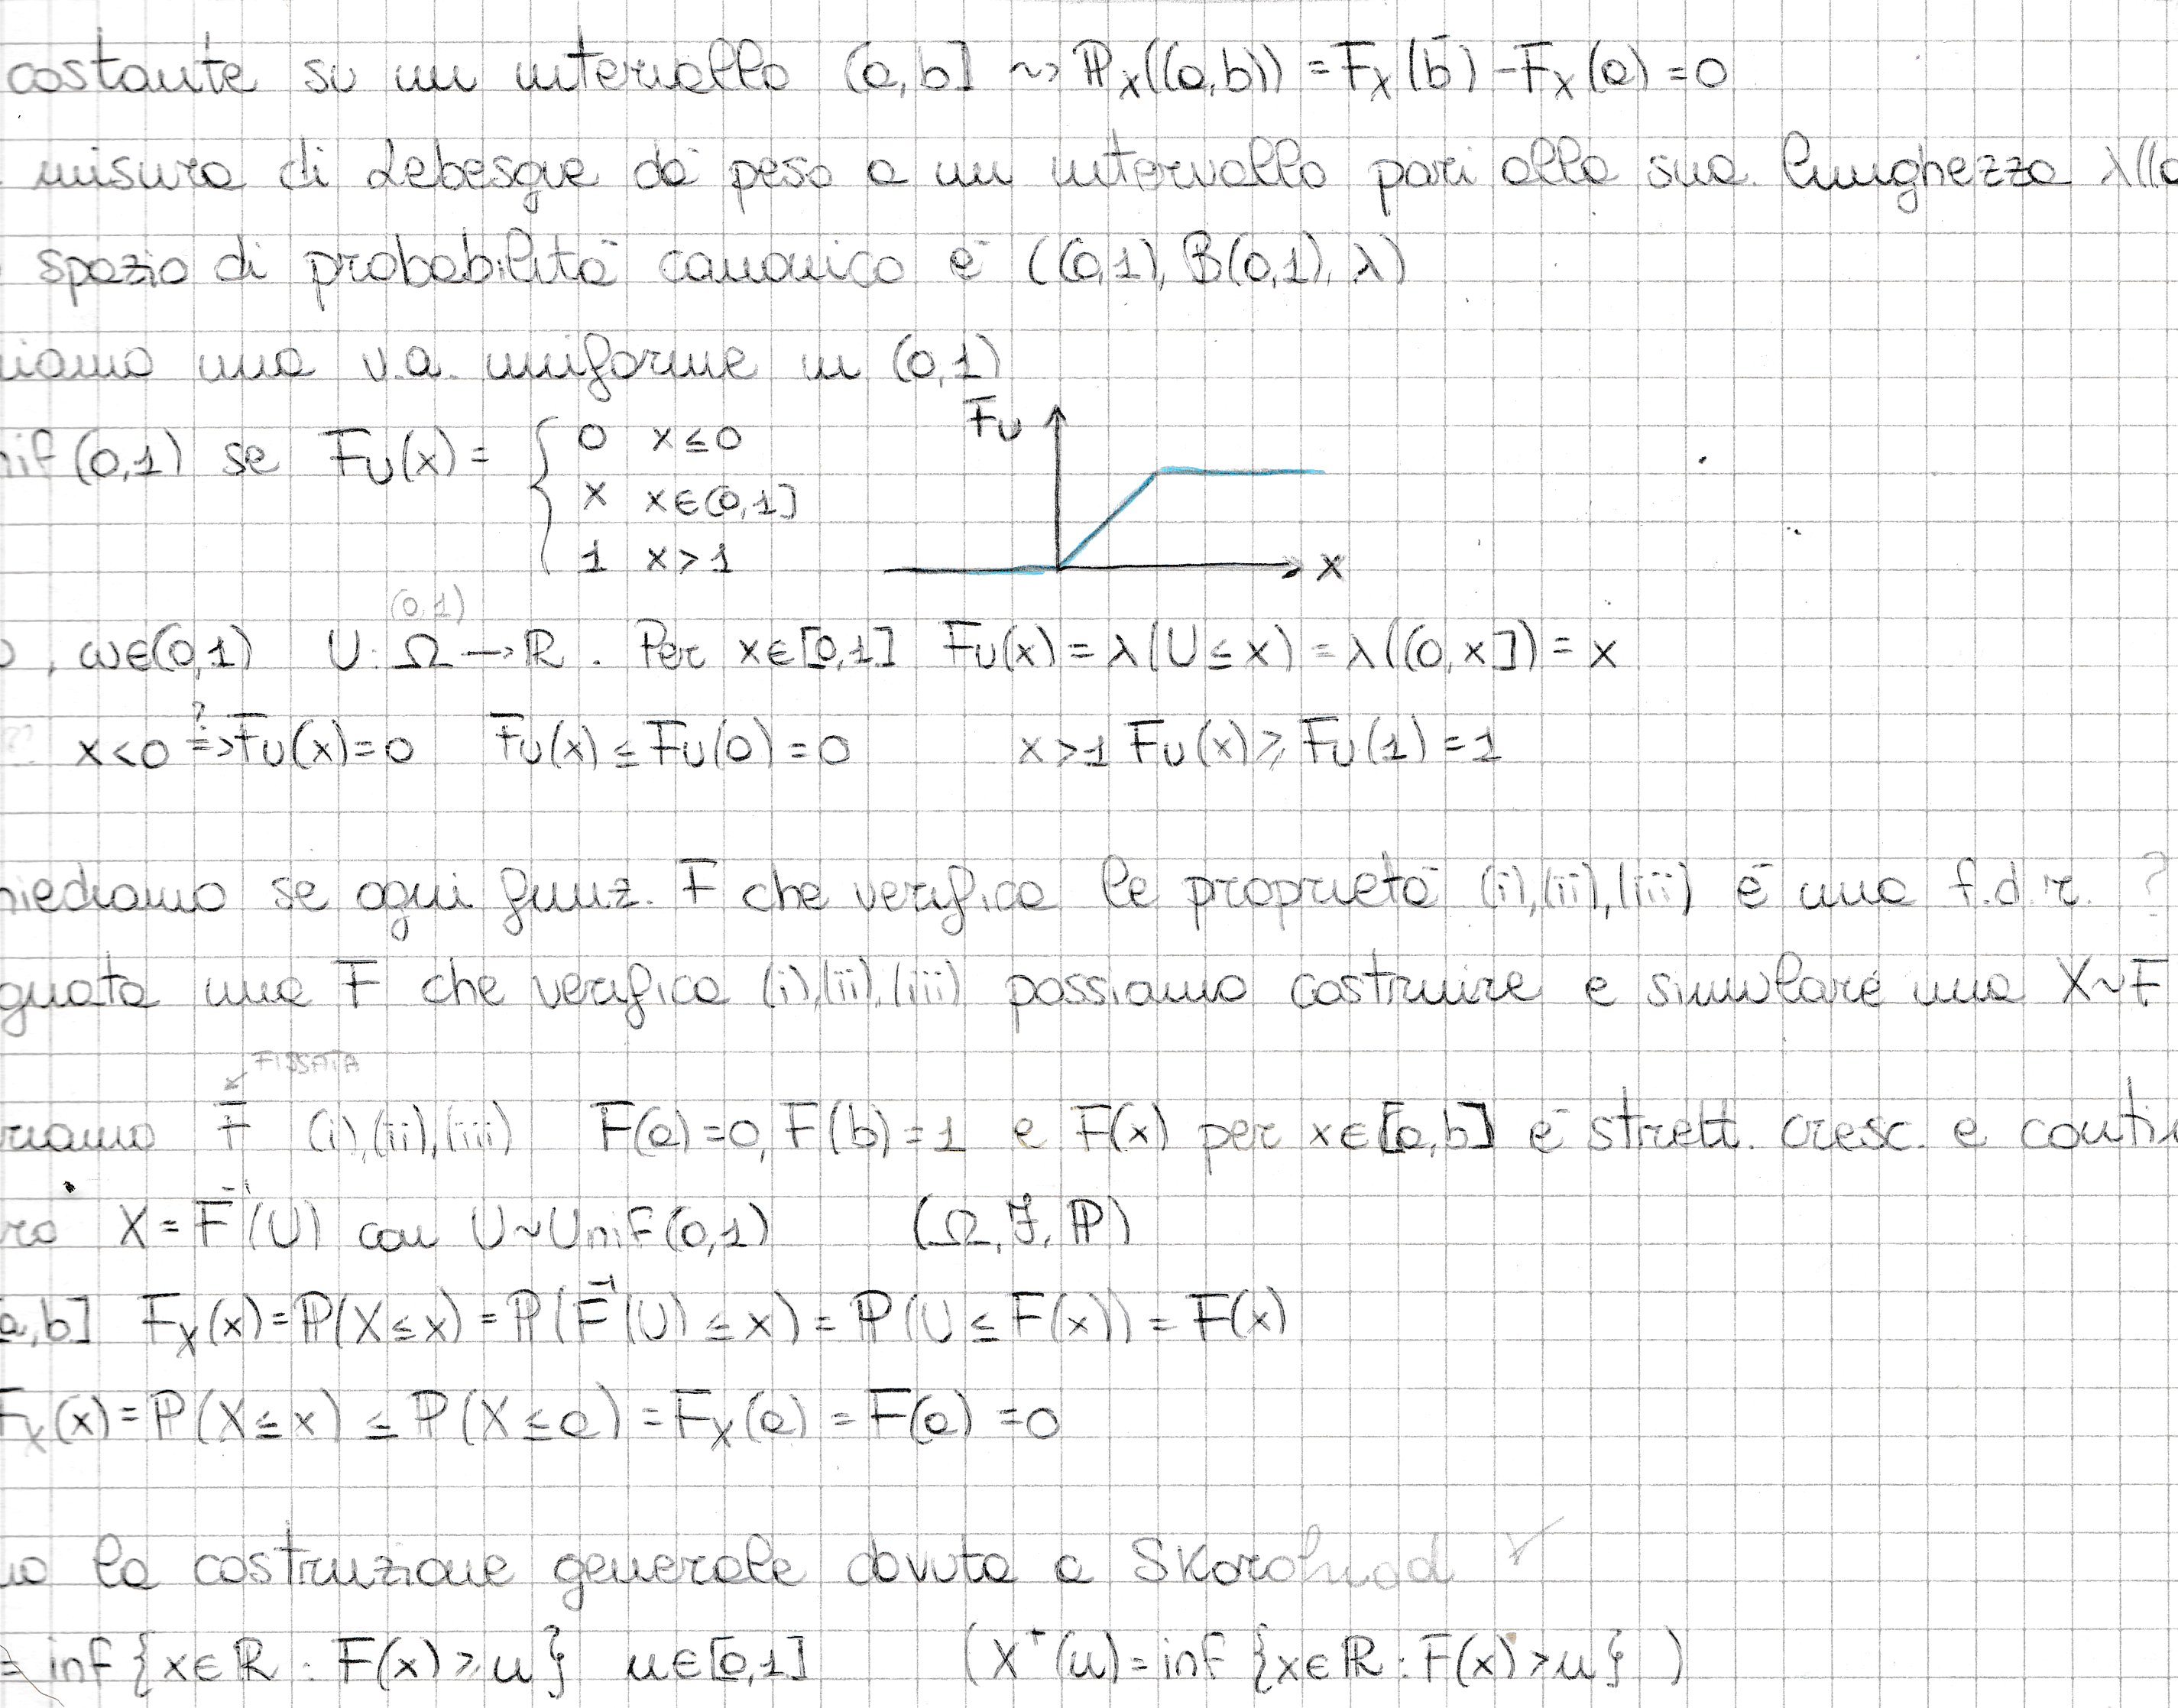 costante su un intervallo (a,b] ⇝ ℙ_X((a,b)) = F_X(b⁻) - F_X(a) = 0
misura di Lebesgue dà peso a un intervallo pari alla sua lunghezza λ((a
spazio di probabilità canonico è ((0,1), B(0,1), λ)
iamo una v.a. uniforme in (0,1)
F_U
nif (0,1) se F_U(x) = { 0 x ≤ 0
x x ∈ (0,1]
1 x > 1
x
(0,1)
, ω∈(0,1) U: Ω → ℝ. Per x∈[0,1] F_U(x) = λ(U ≤ x) = λ((0,x]) = x
?
?? x<0 ⇒ F_U(x)=0 F_U(x) ≤ F_U(0) = 0 x>1 F_U(x) ≥ F_U(1) = 1
hiediamo se ogni funz. F che verifica le proprietà (i),(ii),(iii) è una f.d.r. ?
gnata una F che verifica (i),(ii),(iii) possiamo costruire e simulare una X~F
FISSATA
riamo F (i),(ii),(iii) F(a)=0, F(b)=1 e F(x) per x∈[a,b] è strett. cresc. e conti
ro X = F⁻¹(U) con U~Unif(0,1) (Ω, F, ℙ)
a,b] F_X(x) = ℙ(X ≤ x) = ℙ(F⁻¹(U) ≤ x) = ℙ(U ≤ F(x)) = F(x)
F_X(x) = ℙ(X ≤ x) ≤ ℙ(X ≤ a) = F_X(a) = F(a) = 0
no la costruzione generale dovuta a Skorohod
= inf {x∈ℝ : F(x) ≥ u} u∈[0,1] (X⁺(u) = inf {x∈ℝ : F(x) > u} )